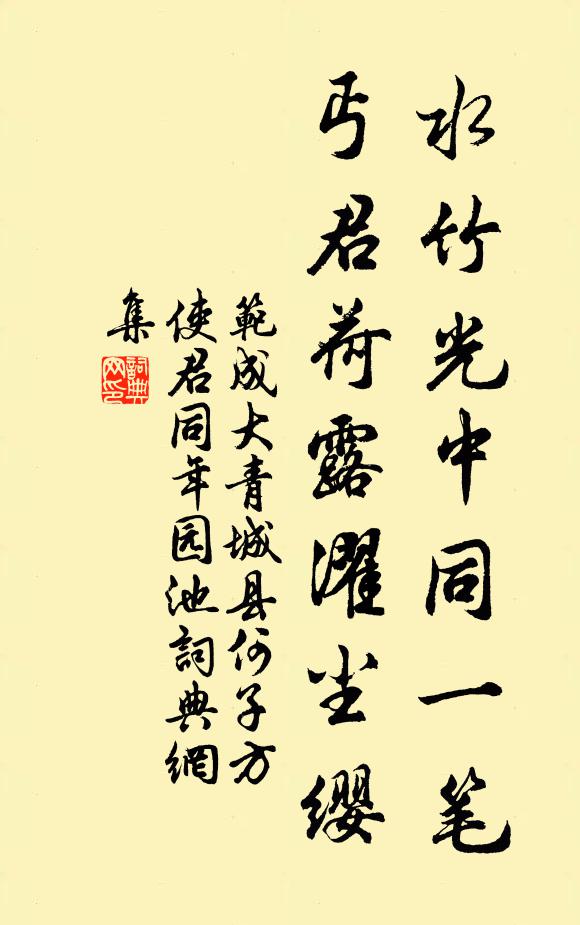 水竹光中同一笔
丐君荷露濯尘缨
範成大青城县何子方
使君同年园池詞典網
集
詞典
网印